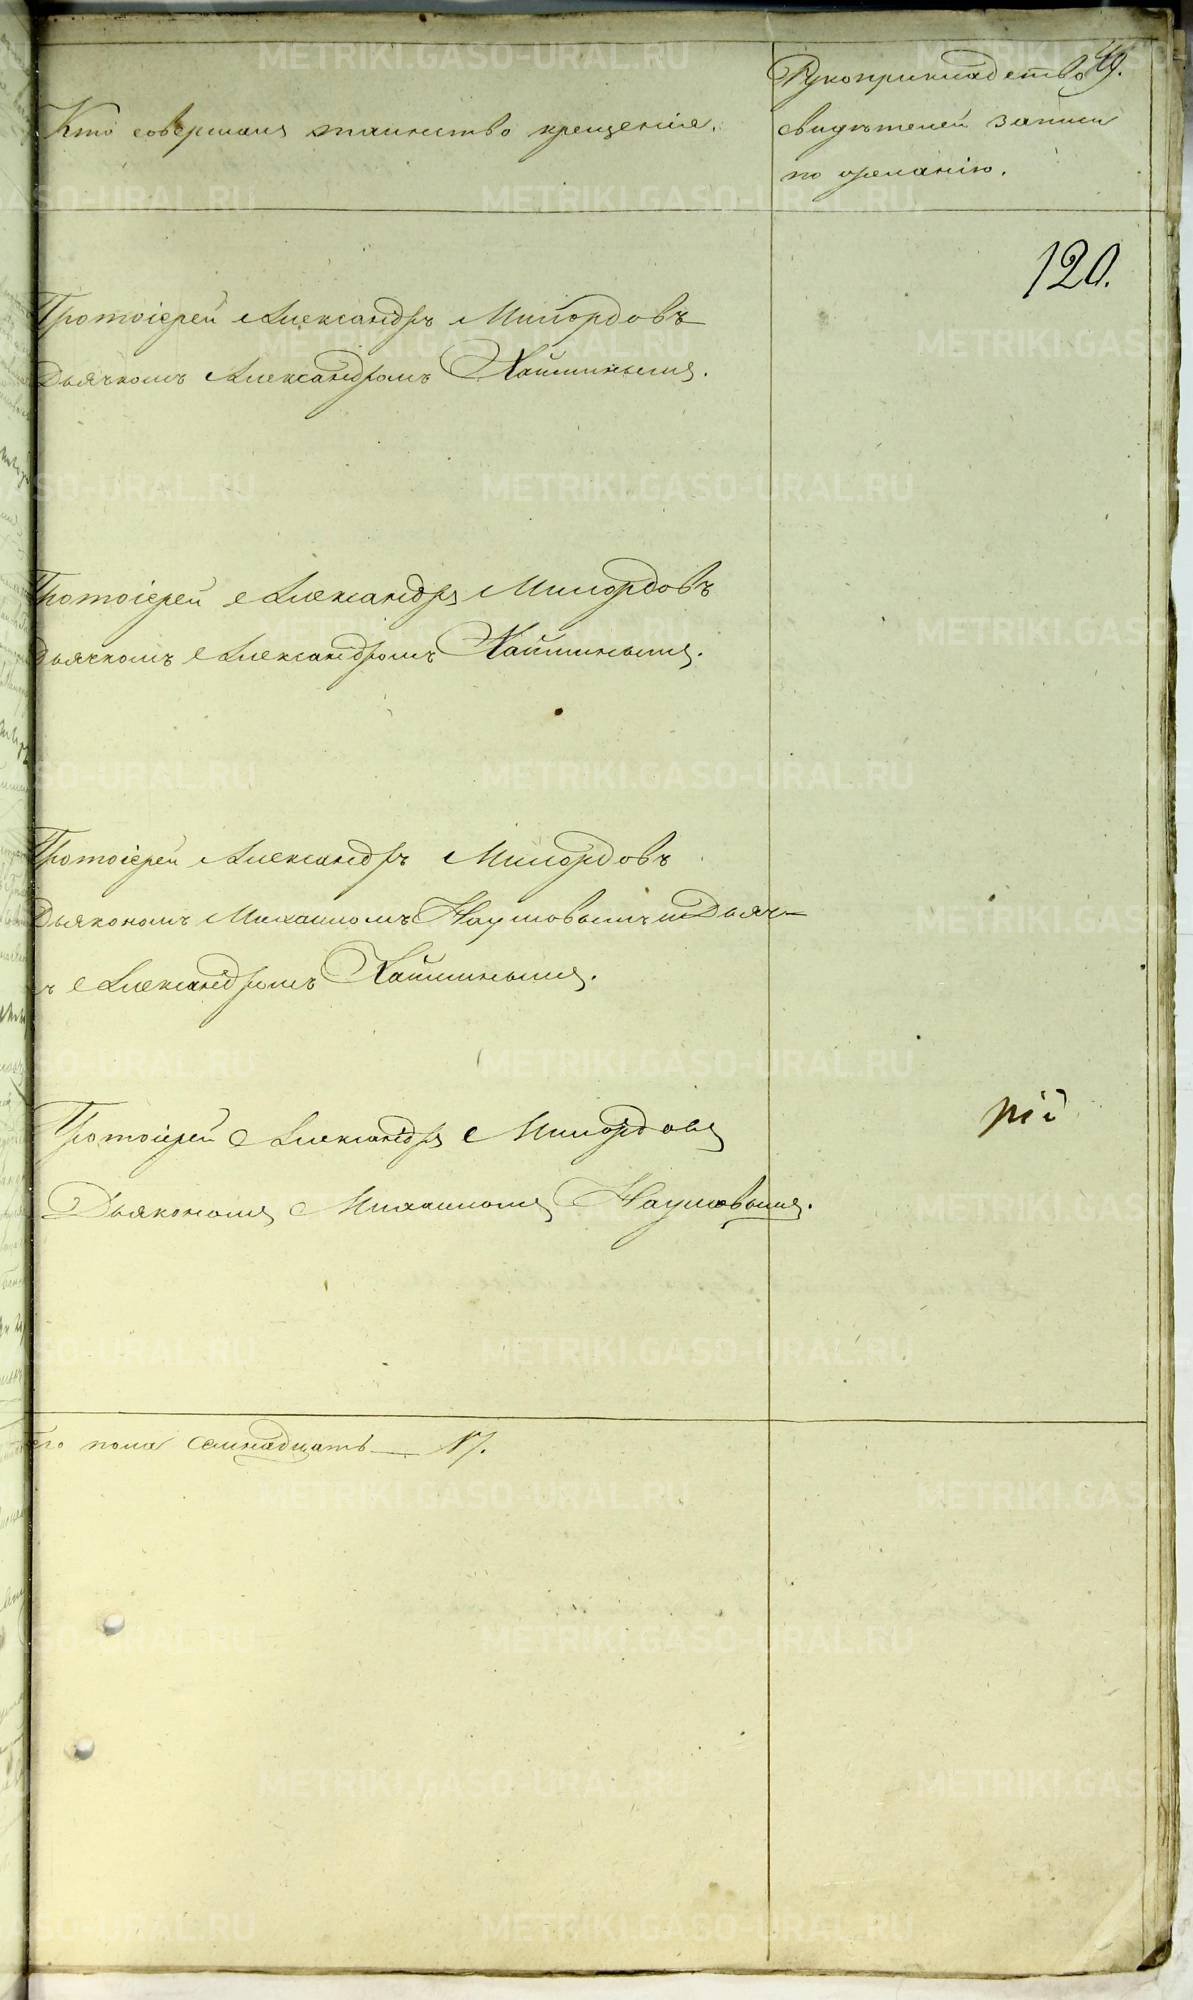 49.
Кто совершалъ таинство крещенія.
Рукоприкладство
свидѣтелей записи
по желанію.
120.
Протоіерей Александръ Милордовъ
Дьячкомъ Александромъ Хайминымъ.
Протоіерей Александръ Милордовъ
Дьячкомъ Александромъ Хайминымъ.
Протоіерей Александръ Милордовъ
Дьякономъ Михаиломъ Наумовымъ и Дьяч-
ъ Александромъ Хайминымъ.
Протоіерей Александръ Милордовъ
Дьякономъ Михаиломъ Наумовымъ.
рій
го пола семнадцать — 17.
METRIKI.GASO-URAL.RU